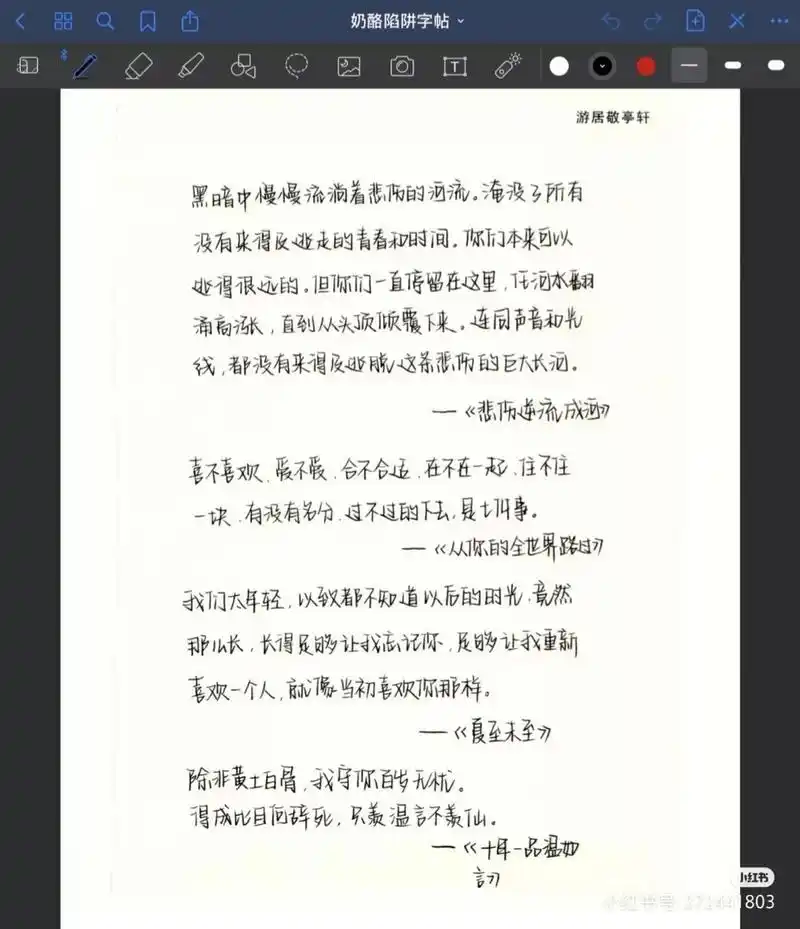 奶酪陷阱字帖
T
游居敬亭轩
黑暗中慢慢流淌着悲伤的河流。淹没了所有
没有来得及逃走的青春和时间。你们本来可以
逃得很远的。但你们一直停留在这里，任河水翻
涌高涨，直到从头顶倾覆下来。连同声音和光
线，都没有来得及逃脱这条悲伤的巨大长河。
—《悲伤逆流成河》
喜不喜欢、爱不爱、合不合适、在不在一起、住不住
一块、有没有名分、过不过的下去，是七件事。
—《从你的全世界路过》
我们太年轻，以致都不知道以后的时光，竟然
那么长，长得足够让我忘记你，足够让我重新
喜欢一个人，就像当初喜欢你那样。
—《夏至未至》
除非黄土白骨，我守你百岁无忧。
得成比目何辞死，只羡温言不羡仙。
—《十年一品温如
言》
小红书
小红书号